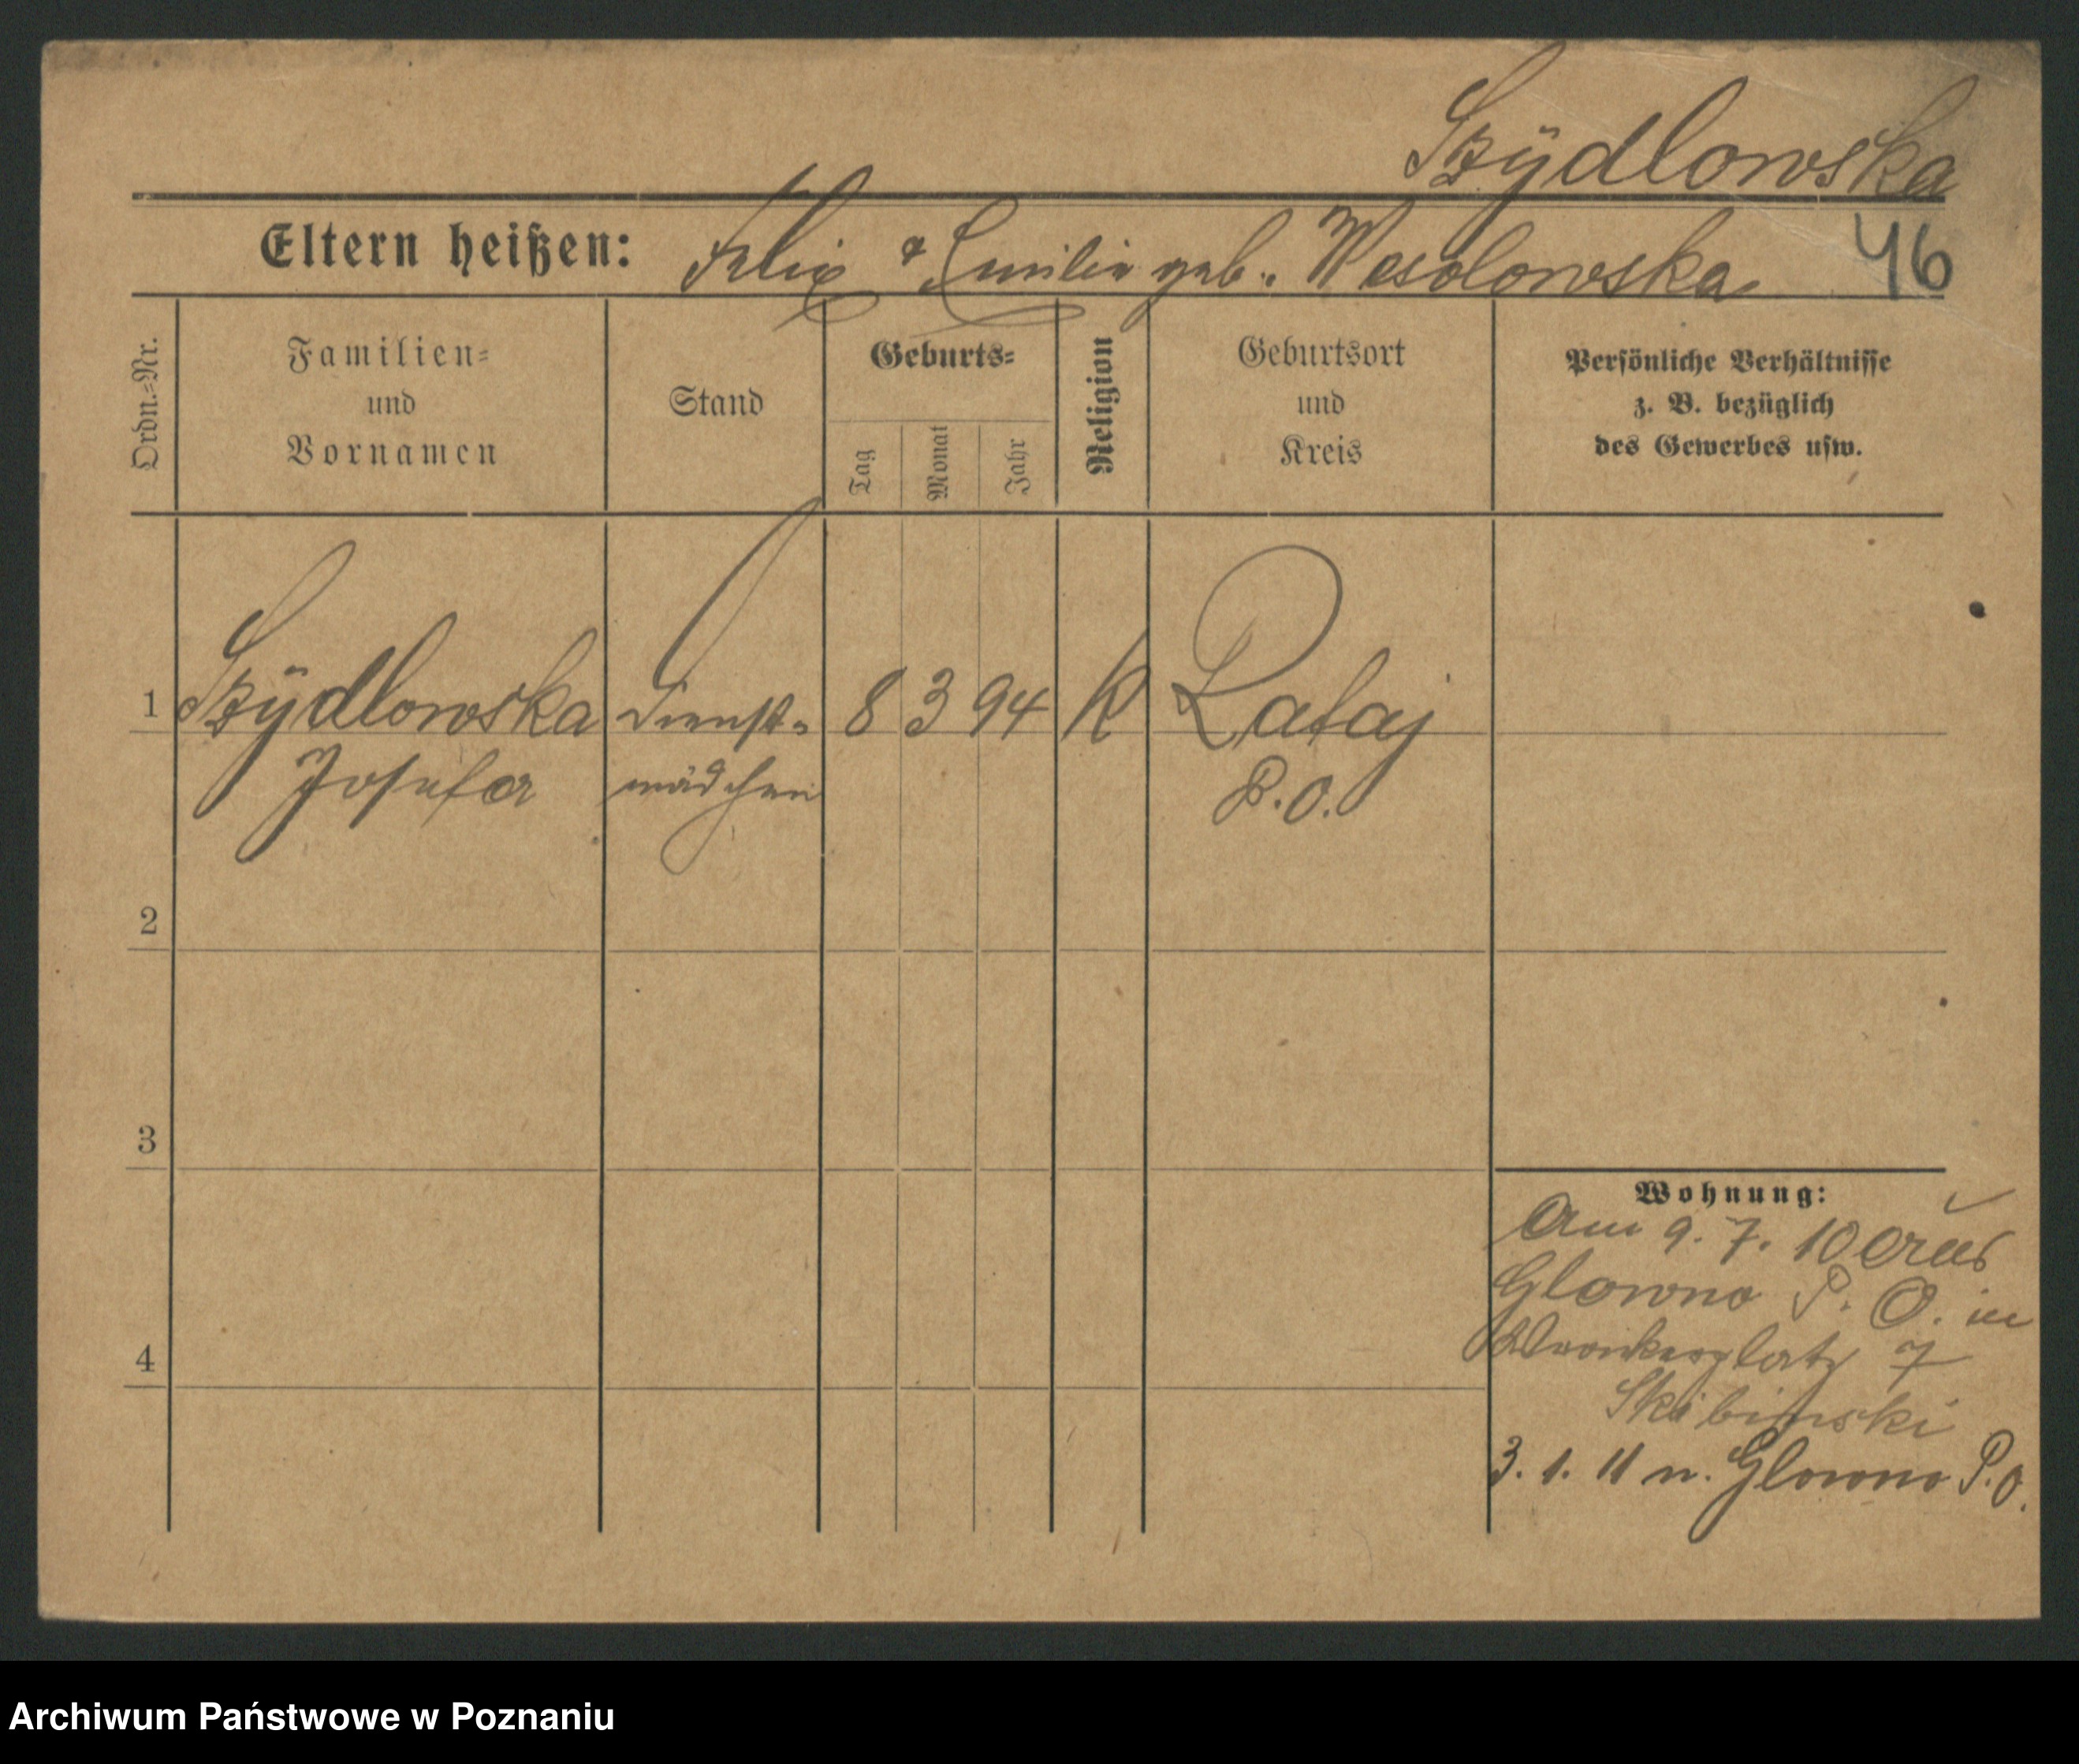 Szÿdlowska
Eltern heißen: Felix & Emilie geb. Wesolowska 46
Ordn.=Nr.
Familien=
und
Vornamen
Stand
Geburts=
Tag
Monat
Jahr
Religion
Geburtsort
und
Kreis
Persönliche Verhältnisse
z. B. bezüglich
des Gewerbes usw.
1 Szÿdlowska Dienst= 8 3 94 K Rataj
Josefa mädchen P.O.
2
3
4
Wohnung:
Am 9. 7. 10 aus
Glowno P. O. in
Wronkerplatz 7
Skibinski
3. 1. 11 n. Glowno P.O.
Archiwum Państwowe w Poznaniu